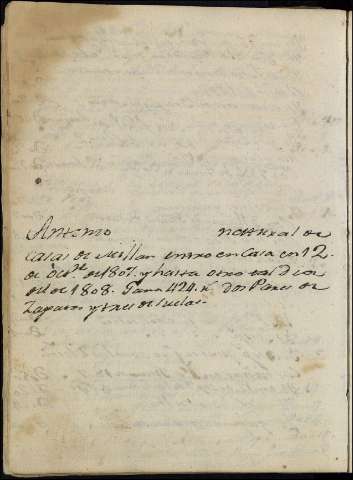 Antonio natural de
Casas de Millan entro en Casa en 12.
de Oct.e de 1807. y hasta otro tal dia
del de 1808. Gana 424. r.s dos Pares de
Zapatos y tres de suelas.